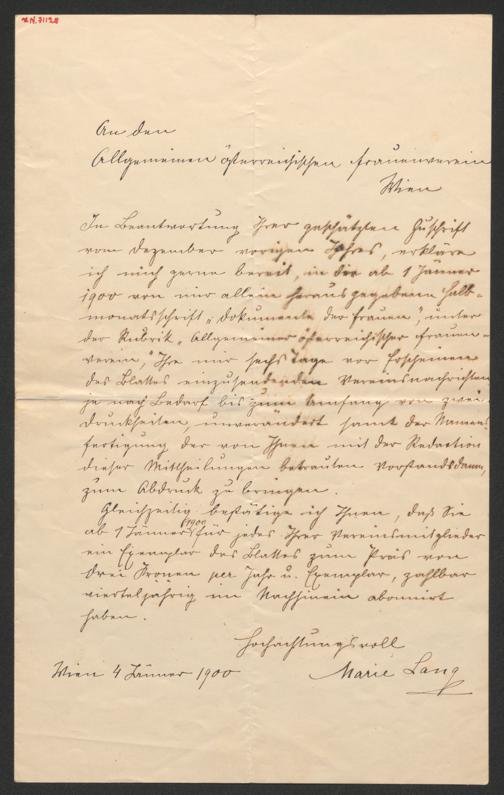 H.N. 71128
An den
Allgemeinen österreichischen Frauenverein
Wien
In Beantwortung Ihrer geschätzten Zuschrift
vom Dezember vorigen Jahres, erkläre
ich mich gerne bereit, in der ab 1 Jänner
1900 von mir allein herausgegebenen Halb-
monatsschrift „Dokumente der Frauen, unter
der Rubrik „Allgemeiner österreichischer Frauen-
verein," Ihre mir sechs Tage vor Erscheinen
des Blattes einzusendenden Vereinsnachrichten
je nach Bedarf bis zum Umfang von zwei
Druckseiten, unverändert samt der Namens
fertigung der von Ihnen mit der Redaction
dieser Mittheilungen betrauten Vorstandsdame,
zum Abdruck zu bringen.
Gleichzeitig bestätige ich Ihnen, daß Sie
ab 1 Jänner 1900 für jedes Ihrer Vereinsmitglieder
ein Exemplar des Blattes zum Preis von
drei Kronen per Jahr u. Exemplar, zahlbar
vierteljährig im Nachhinein abonnirt
haben.
Hochachtungsvoll
Wien 4 Jänner 1900 Marie Lang